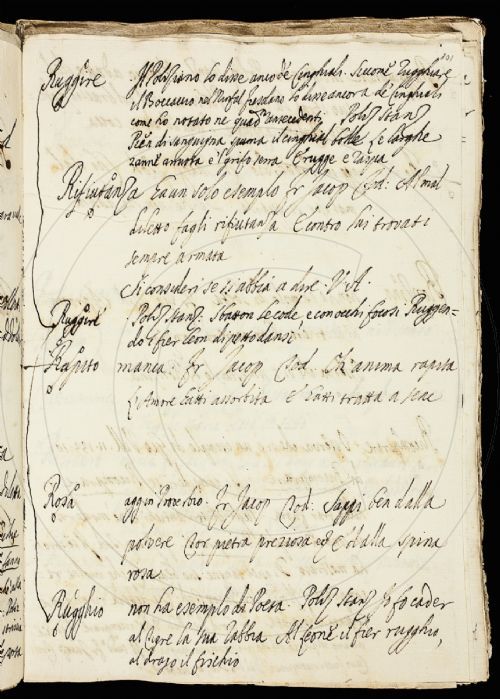 101
Ruggire Il Poliziano lo disse anco de Cinghiali. Siccome Rugghiare
il Boccaccio nel Ninfal Fiesolano lo disse ancora de Cinghiali
come ho notato ne quad: antecedenti. Poliz Stanz
Pien di sanguigna schiuma il cinghial bolle Le larghe
zanne arruota e 'l grifo serra E rugge e raspa
Rifiutanza Ha un solo esempio. Fr Jacop Tod: Al mal
diletto fagli rifiutanza E contro lui trovati
sempre armata
Si consideri se s'abbia a dire. V.A.
Ruggire Poliz Stanz. Sbatton le code e con occhi focosi Ruggen-
do i fier leon di petto dansi
Rapito manca. Fr Jacop Tod. Ch: anima rapita
L'Amore t'atti assorbita E t'atti tratta a seae
Rosa agg in Proverbio. Fr Jacop Tod: Sappi ben dalla
polvere Tor pietra preziosa ed e dalla spina
rosa
Rugghio non ha esempio di Poeta. Poliz Stanz Io fo cader
al tigre la sua rabbia Al leone il fier rugghio,
al drago il fischio